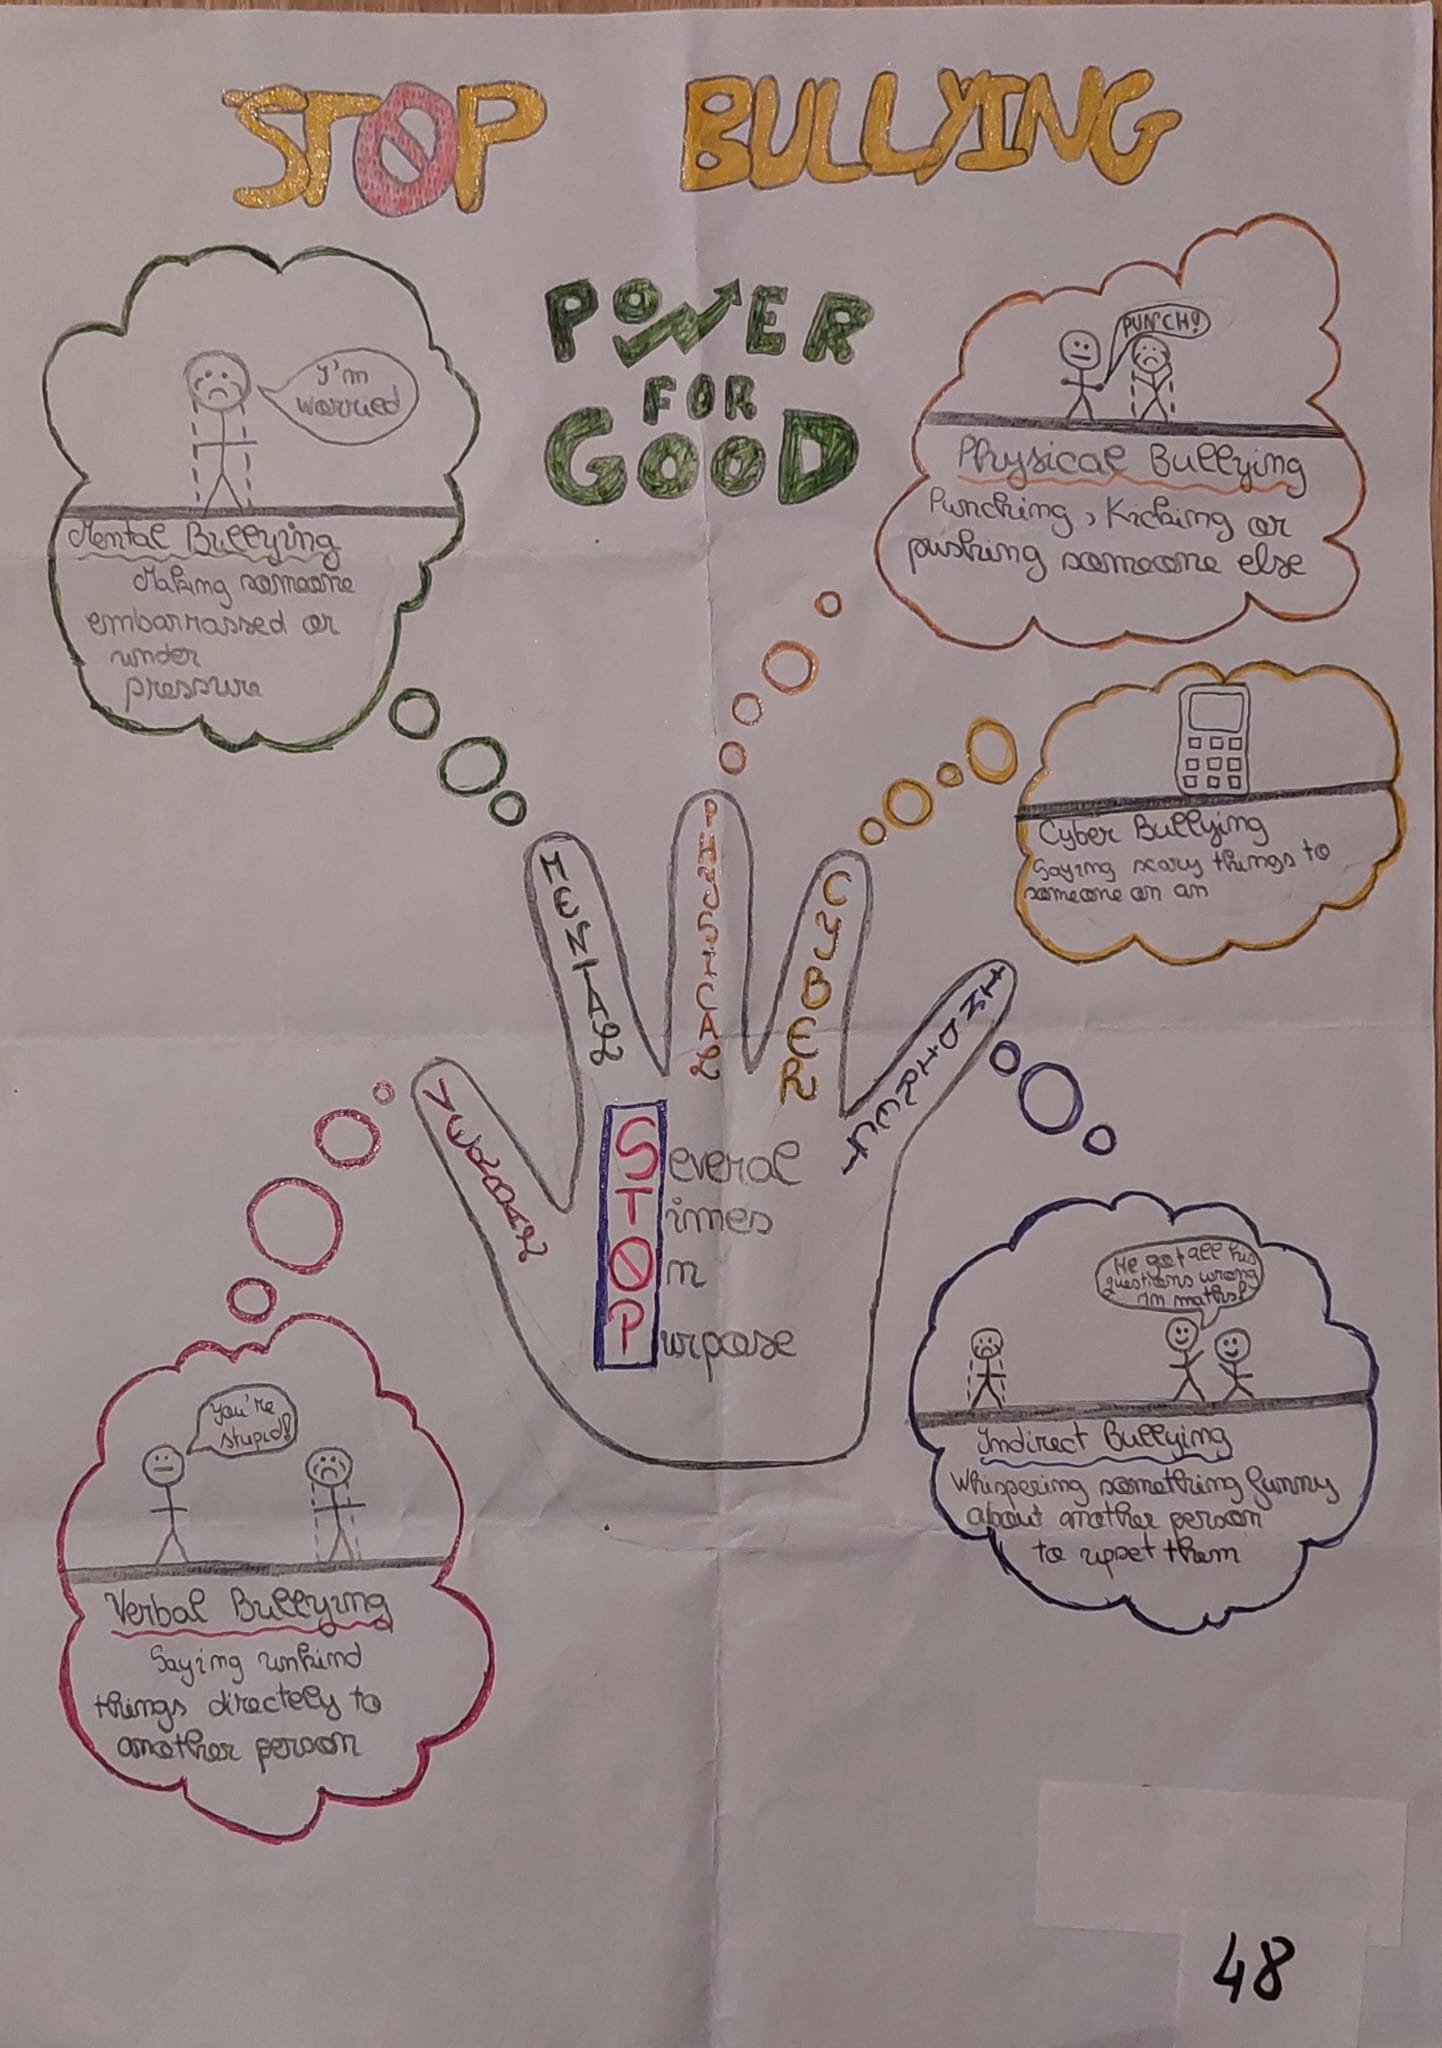 STOP BULLYING
POWER
FOR
GOOD
I'm
worried
Mental Bullying
Making someone
embarrassed or
under
pressure
PUNCH!
Physical Bullying
Punching, Kicking or
pushing someone else
Cyber Bullying
Saying scary things to
someone on an
VERBAL
MENTAL
PHYSICAL
CYBER
INDIRECT
Several
Times
On
Purpose
You're
stupid!
Verbal Bullying
Saying unkind
things directely to
another person
He got all his
questions wrong
in maths!
Indirect Bullying
Whispering something funny
about another person
to upset them
48